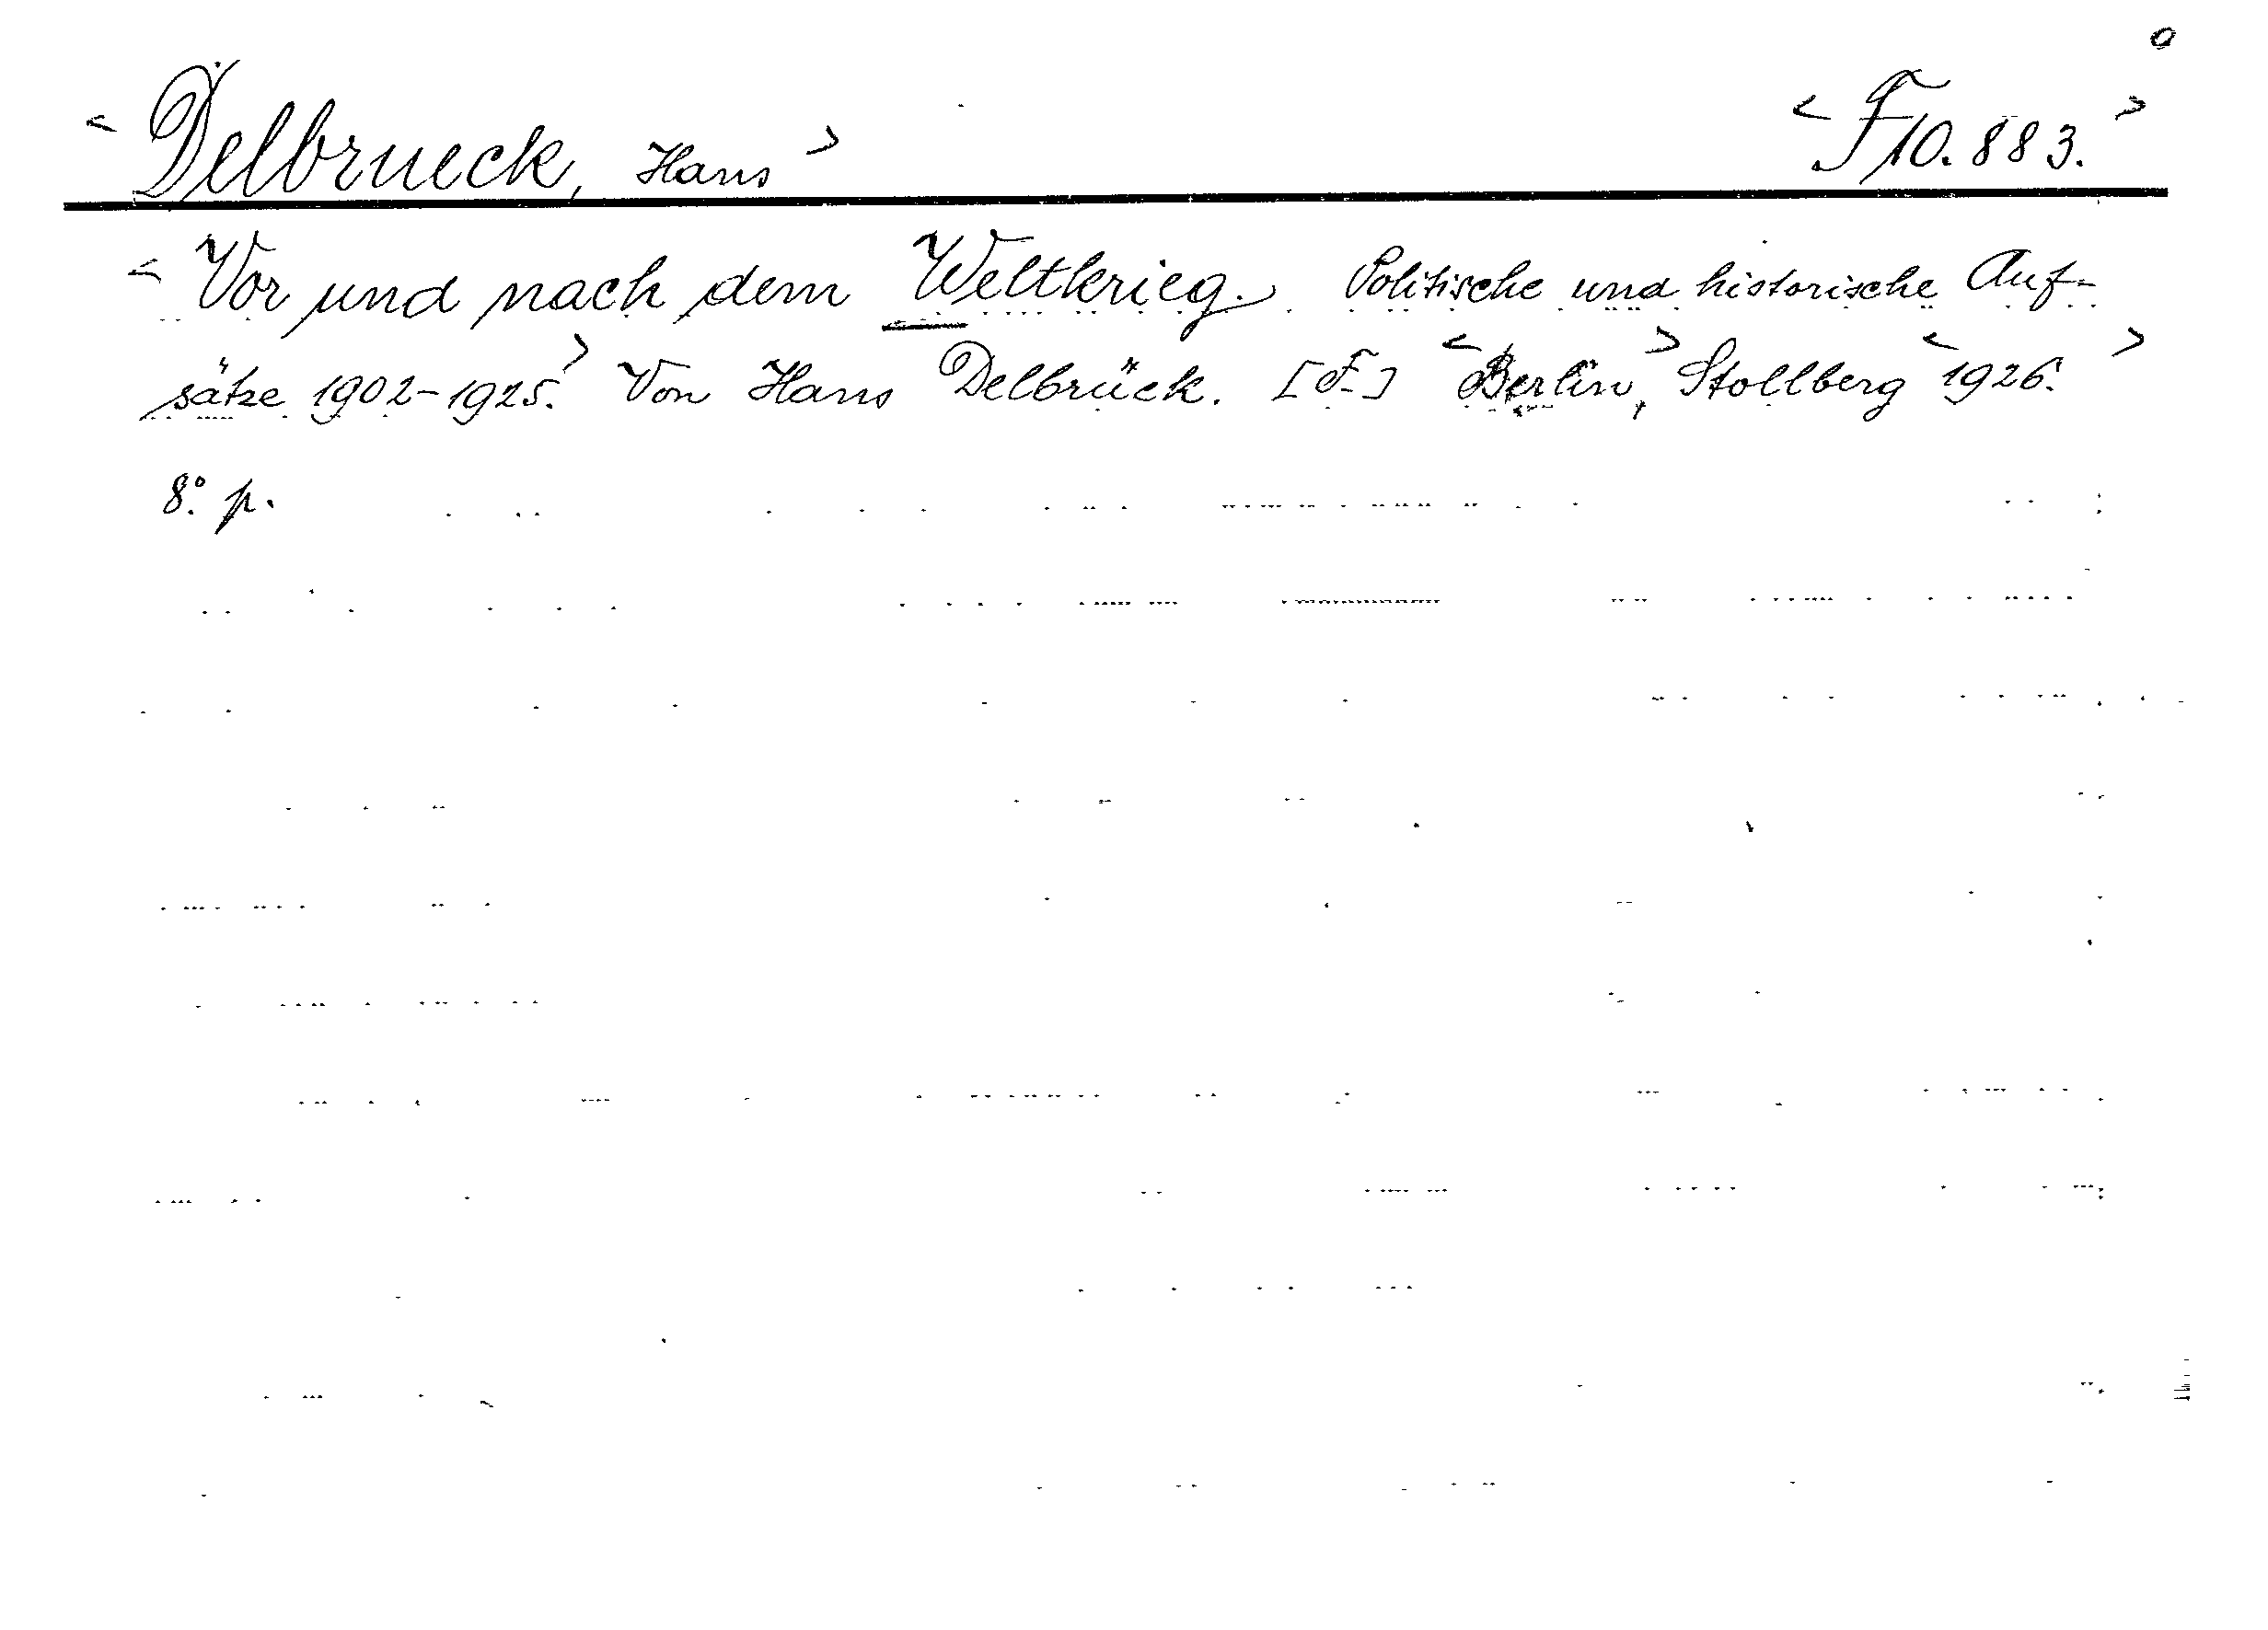 <Delbrueck, Hans> <F10.883.>
<Vor und nach dem Weltkrieg. Politische und historische Auf-
sätze 1902-1925.> Von Hans Delbrück. [F.] <Berlin,> Stollberg <1926.>
8.° p.